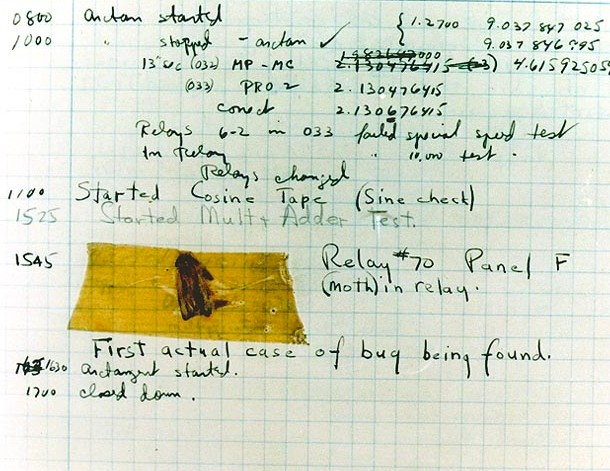 0800 arctan started { 1.2700 9.037 847 025
1000 " stopped - arctan ✓ 9.037 846 795
13"uc (032) MP - MC 2.130476415 4.615925059
(033) PRO 2 2.130476415
conect 2.130676415
Relays 6-2 in 033 failed special speed test
In Relay " 10.000 test .
Relays changed
1100 Started Cosine Tape (Sine check)
1525 Started Mult + Adder Test.
1545 Relay #70 Panel F
(moth) in relay.
First actual case of bug being found.
1630 arctangent started.
1700 closed down.